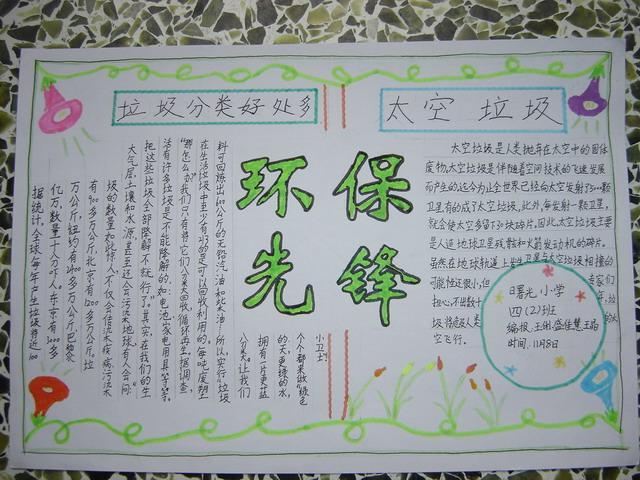 垃圾分类好处多
太空垃圾
环保
先锋
据统计,全球每年产生垃圾将近100
亿万,数量十人吓人。东京有3000多
万公斤,纽约有2400多万公斤,巴黎
有900多万公斤,北京有1200多万公斤。垃
圾的数量如此惊人,不仅会传染疾病,污染
大气层、土壤和水源,甚至还会污染地球。有人会问:
把这些垃圾全部降解不就行了。”其实,在我们的生
活有许多垃圾是不能降解的,如:电池、家电用具等等。
“那怎么办?我们只有将它们分类回收,循环再生。据调查,
在生活垃圾中至少有1/3的是可以回收利用的,每吨废塑
料可回炼出600公斤的无铅汽油和柴油……所以,实行“垃圾
分类”,让我们
拥有一片更蓝
的天,更绿的水,
个个都来做“绿色
小卫士”
太空垃圾是人类抛弃在太空中的固体
废物,太空垃圾是伴随着空间技术的飞速发展
而产生的,迄今为止全世界已经向太空发射了3000颗
卫星,有的成了太空垃圾。此外,每发射一颗卫星,
就会使太空多留下30块碎片。因此,太空垃圾主要
是人造地球卫星残骸和火箭发动机的碎片。
虽然在地球轨道上发生卫星与太空垃圾相撞的
可能性还很小,但 专家们
担心,不出数十 年,垃
圾将超及人类 的太
空飞行。
曙光小学
四(2)班
编报:王俐.盛佳慧.王晶
时间:11月8日